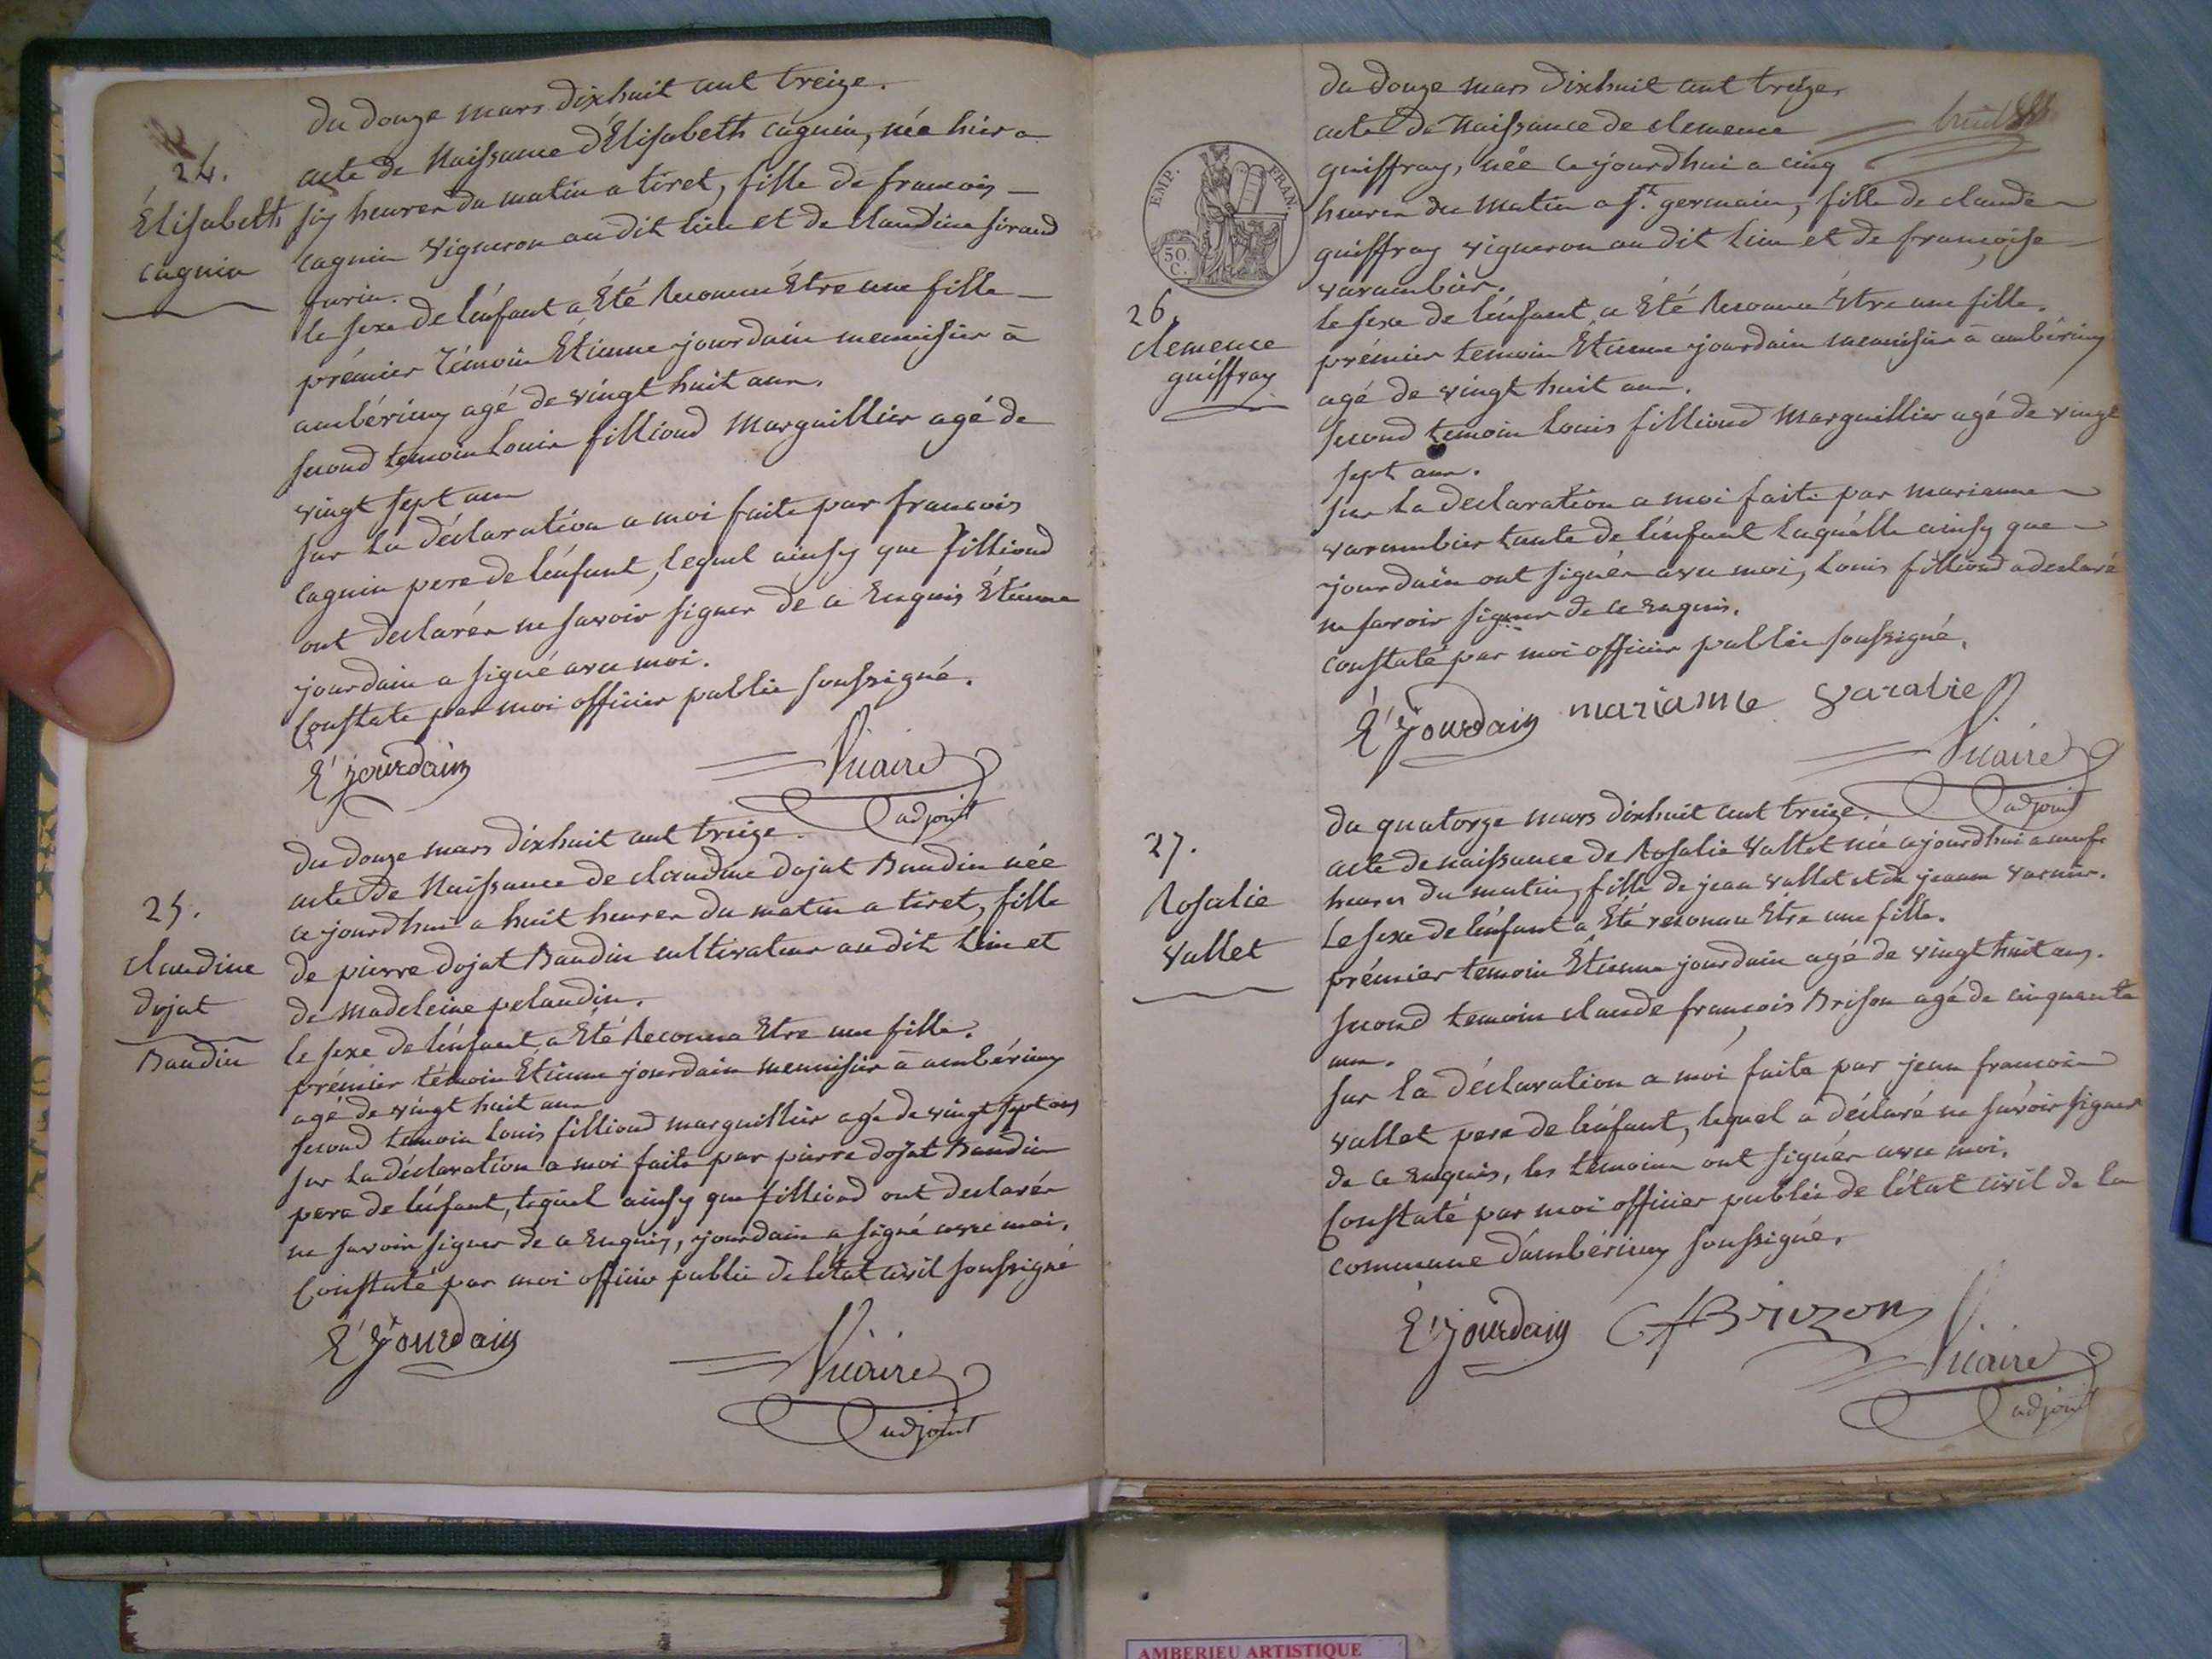 du douze mars dixhuit cent treize.
24.
Élisabeth
cagnin
acte de Naissance d'Élisabeth cagnin, née hier a
six heures du matin a tiret, fille de francois
cagnin vigneron au dit lieu et de claudine siraud
le sexe de l'énfant a Été Reconnu Être une fille
prémier témoin Étienne jourdain menuisier à
ambérieux agé de vingt huit ans.
second temoin Louis fillioud Marguillier agé de
vingt sept ans
sur la déclaration a moi faite par francois
cagnin pere de l'énfant, lequel ainsy que fillioud
ont declarés ne savoir signer de ce Enquis Étienne
jourdain a signé avec moi.
Constaté par moi officier public soussigné.
E' jourdain
Vicaire
adjoint
25.
claudine
dojat
Baudin
du douze mars dixhuit cent treize.
acte de Naissance de claudine dojat Baudin née
ce jourd'hui a huit heures du matin a tiret, fille
de pierre dojat Baudin cultivateur au dit lieu et
de Madeleine pelaudin.
le sexe de l'énfant, a Été Reconnu Etre une fille.
prémier témoin Étienne jourdain menuisier à ambérieux
agé de vingt huit ans
second temoin Louis fillioud marguillier agé de vingt sept ans
sur la déclaration a moi faite par pierre dojat Baudin
pere de l'énfant, lequel ainsy que fillioud ont declarés
ne savoir signer de ce Enquis, jourdain a signé avec moi.
Constaté par moi officier public de l'état civil soussigné
E' jourdain
Vicaire
adjoint
du douze mars dixhuit cent treize,
huit
EMP. FRAN.
50
C.
26.
clemence
guiffray
acte de Naissance de clemence
guiffray, née ce jourd'hui a cinq
heures du matin a St. germain, fille de claude
guiffray vigneron au dit lieu et de francoise
varambier.
le sexe de l'énfant, a Été Reconnu Être une fille.
prémier temoin Étienne jourdain menuisier à ambérieux
agé de vingt huit ans.
second temoin Louis fillioud Marguillier agé de vingt
sept ans.
sur la declaration a moi faite par marianne
varambier tante de l'énfant laquélle ainsy que
jourdain ont signés avec moi, Louis fillioud a declaré
ne savoir signer de ce enquis.
constaté par moi officier public soussigné.
E' jourdain marianne varabie
Vicaire
adjoint
27.
Rosalie
vallet
du quatorze mars dixhuit cent treize.
acte de naissance de Rosalie vallet née ce jourd'hui a neuf
heures du matin, fille de jean vallet et de jeanne varnier.
Le sexe de l'énfant a Été reconnu Etre une fille.
prémier temoin Étienne jourdain agé de vingt huit ans.
second temoin claude francois Brison agé de cinquante
ans.
sur la déclaration a moi faite par jean francois
vallet pere de l'énfant, lequel a déclaré ne savoir signer
de ce enquis, les témoins ont signés avec moi.
Constaté par moi officier public de l'état civil de la
commune d'ambérieux soussigné.
E' jourdain CfBrizon
Vicaire
adjoint
AMBERIEU ARTISTIQUE